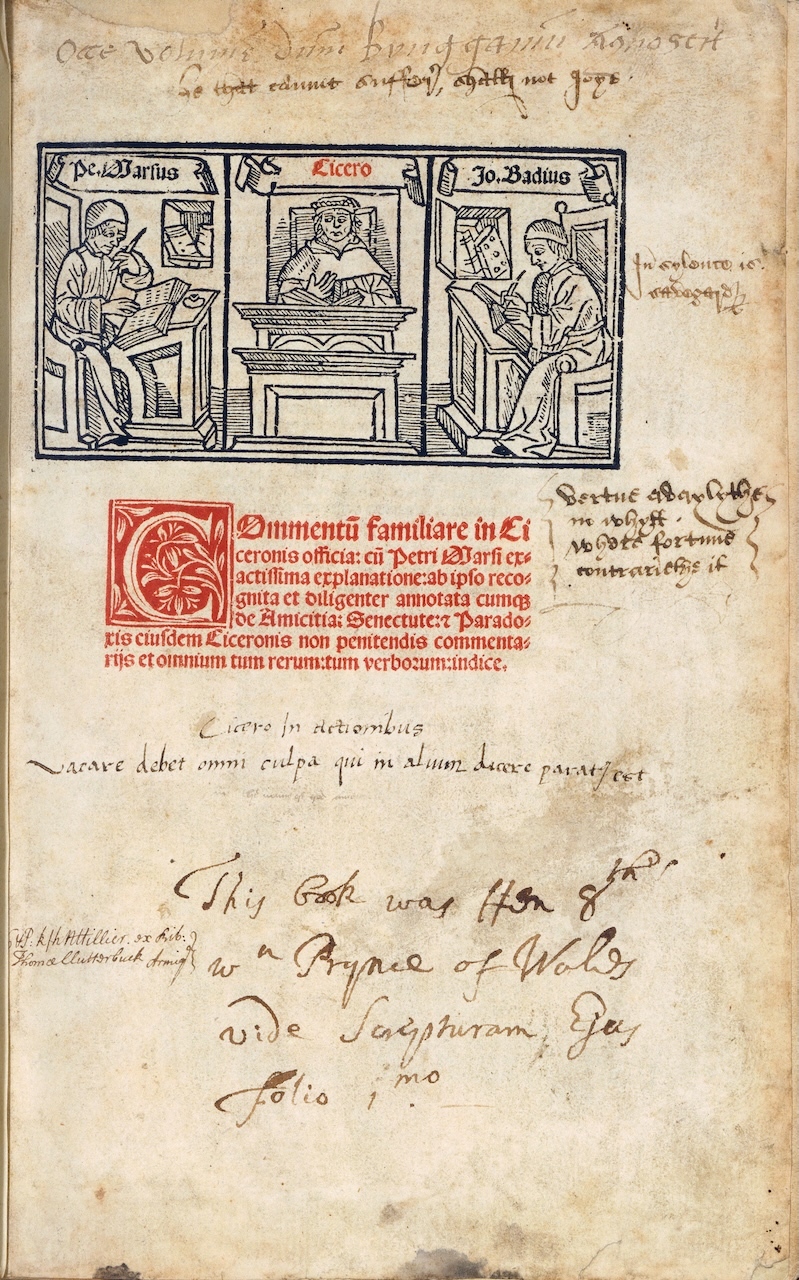 Hoc volumē dūm Bruggamū Agnoscit
he that cannot suffer, shall not Joye.
Pe.Marsus
Cicero
Jo.Badius
In sylence is
Commentū familiare in Ci
ceronis officia: cū Petri Marsi ex-
actissima explanatione: ab ipso reco-
gnita et diligenter annotata cumqꝫ
de Amicitia: Senectute: ⁊ Parado-
xis eiusdem Ciceronis non penitendis commenta-
rijs et omnium tum rerum: tum verborum: indice.
vertue avaylethe
in whyst.
where fortune
contrariethe it
Cicero In actionibus
Vacare debet omni culpa qui in alium dicere paratꝫ est
This book was Hen 8th
wn Prynce of Wales
vide Scripturam Ejus
folio 1mo
ex lib:
Thomæ Clutterbuck Armig